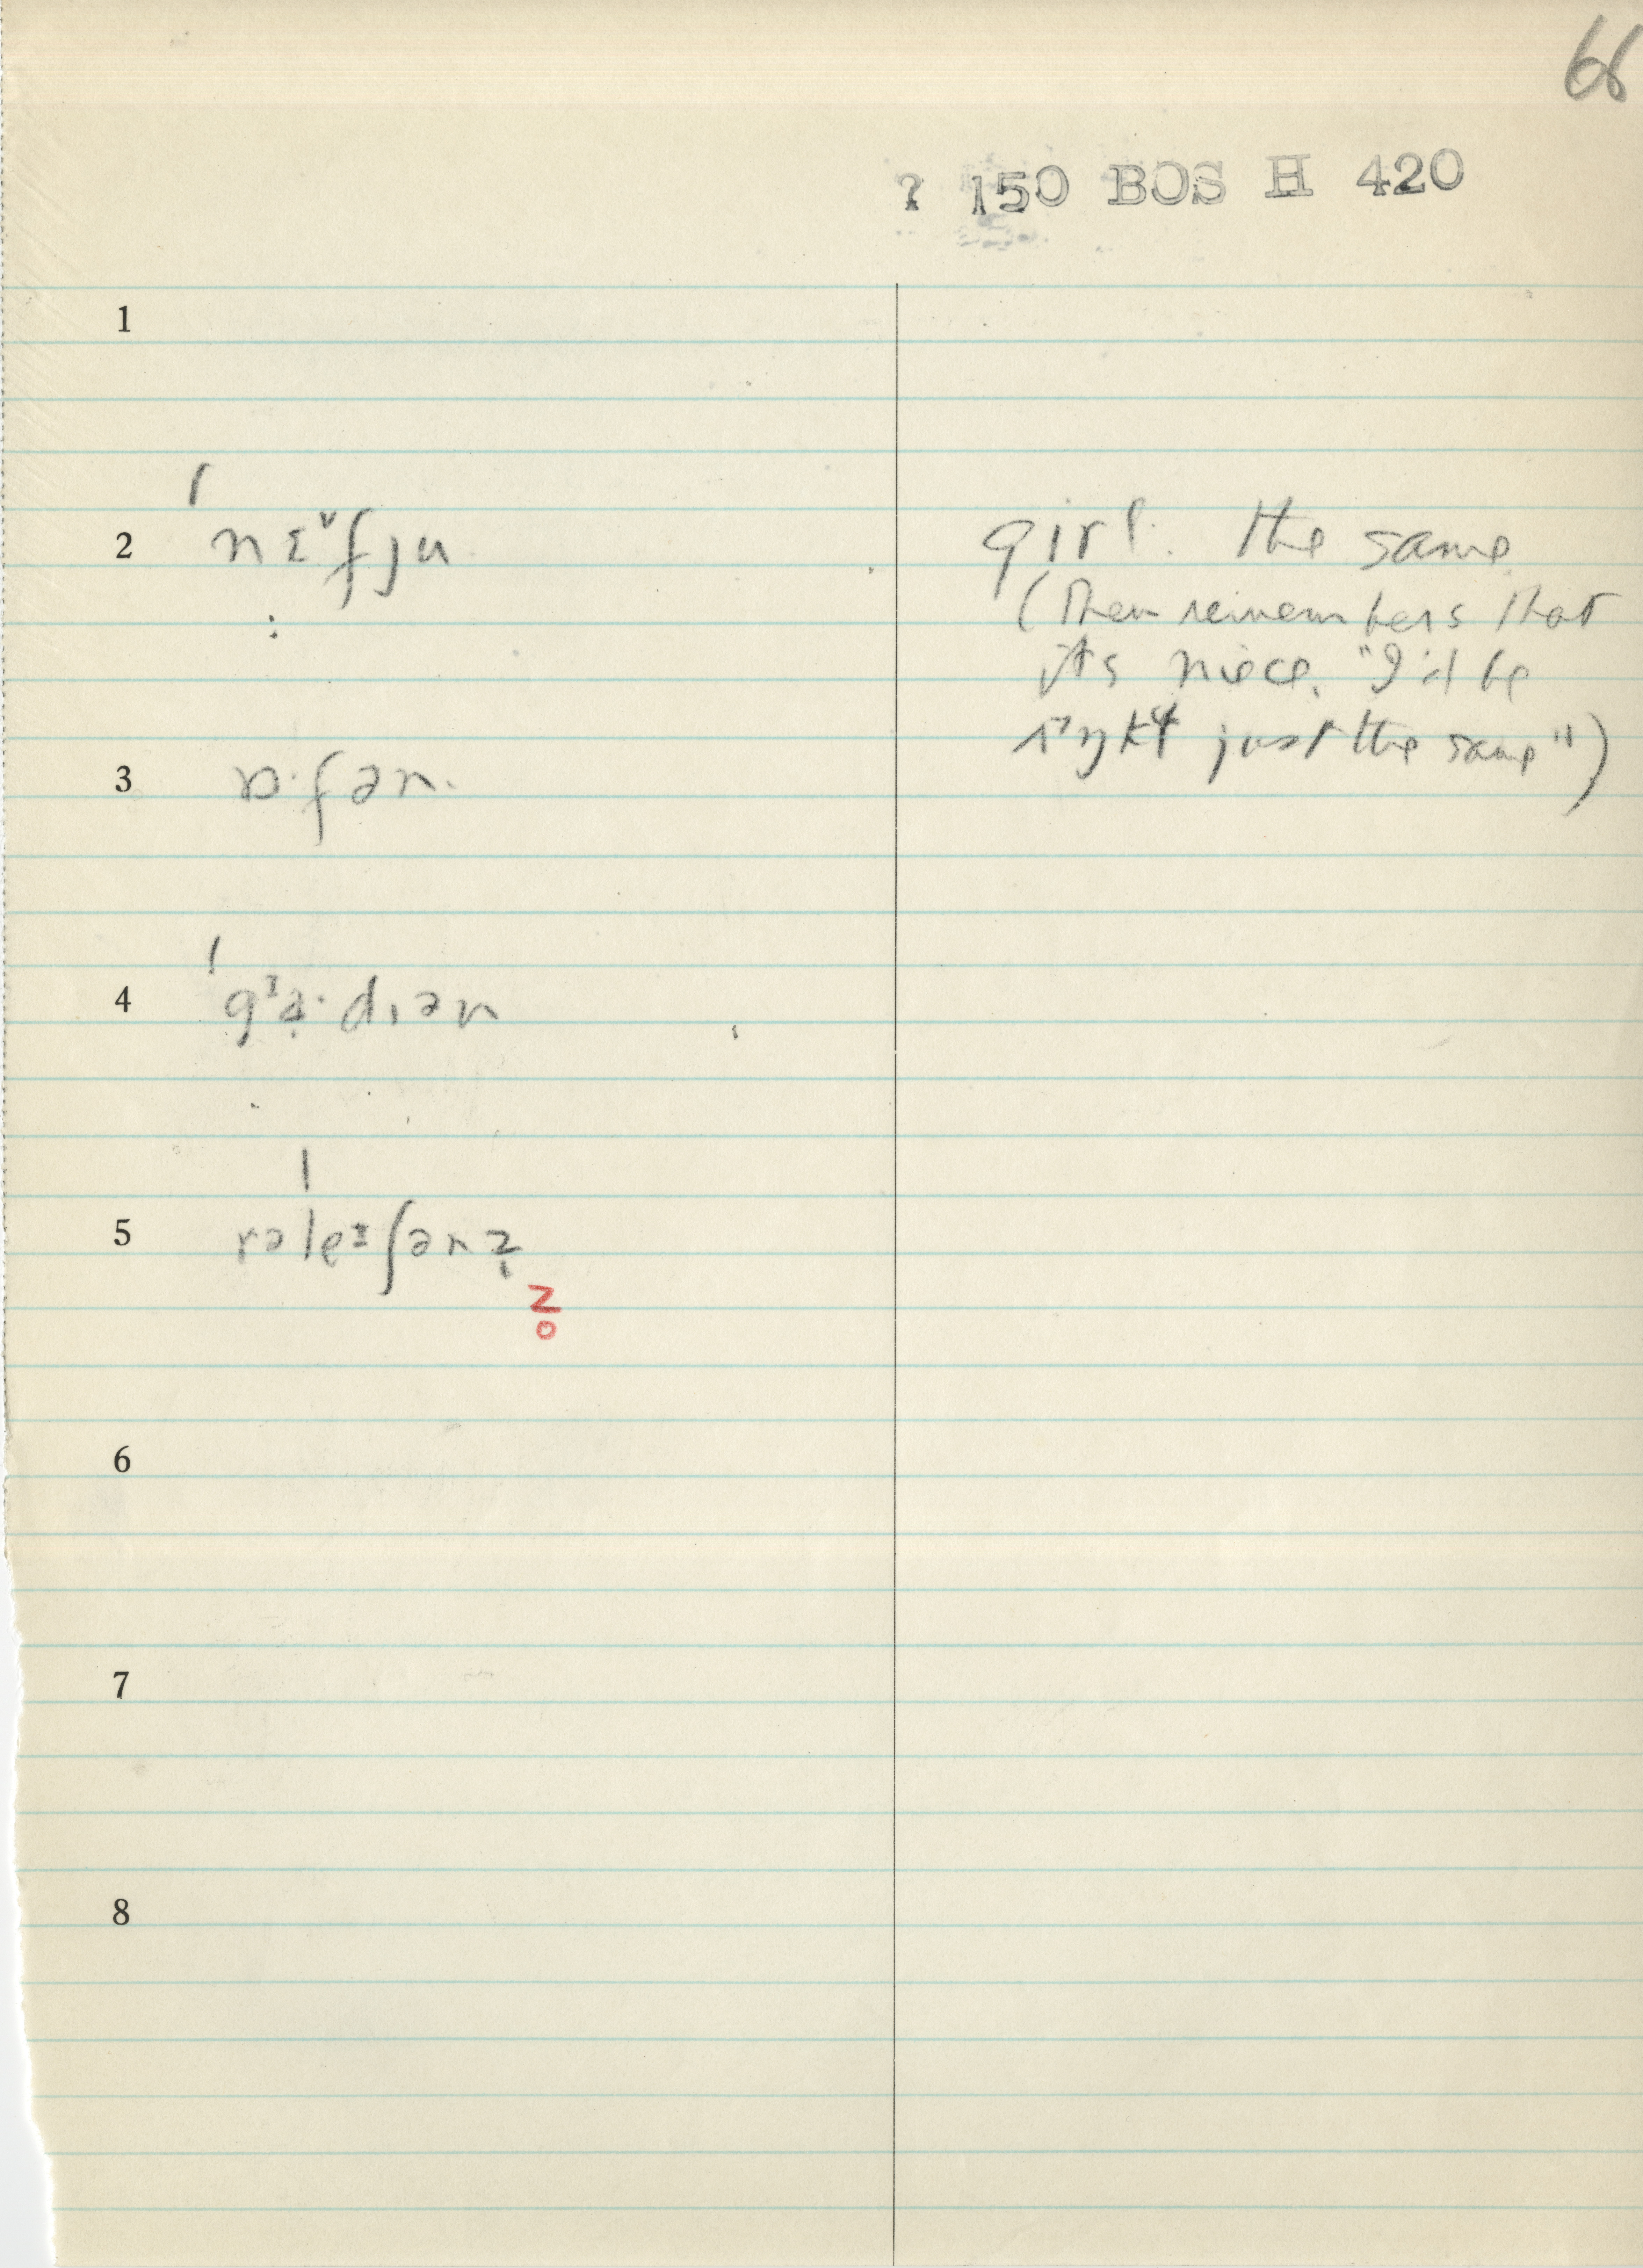 66
? 150 BOS H 420
1
2 ˈnɛ˅fju girl. the same
(Then remembers that
its niece. "I'd be
just the same")
3 ɒ·fən.
4 ˈgɜa·dɪən
5 rəˈleɪʃənz̥
z̥
6
7
8